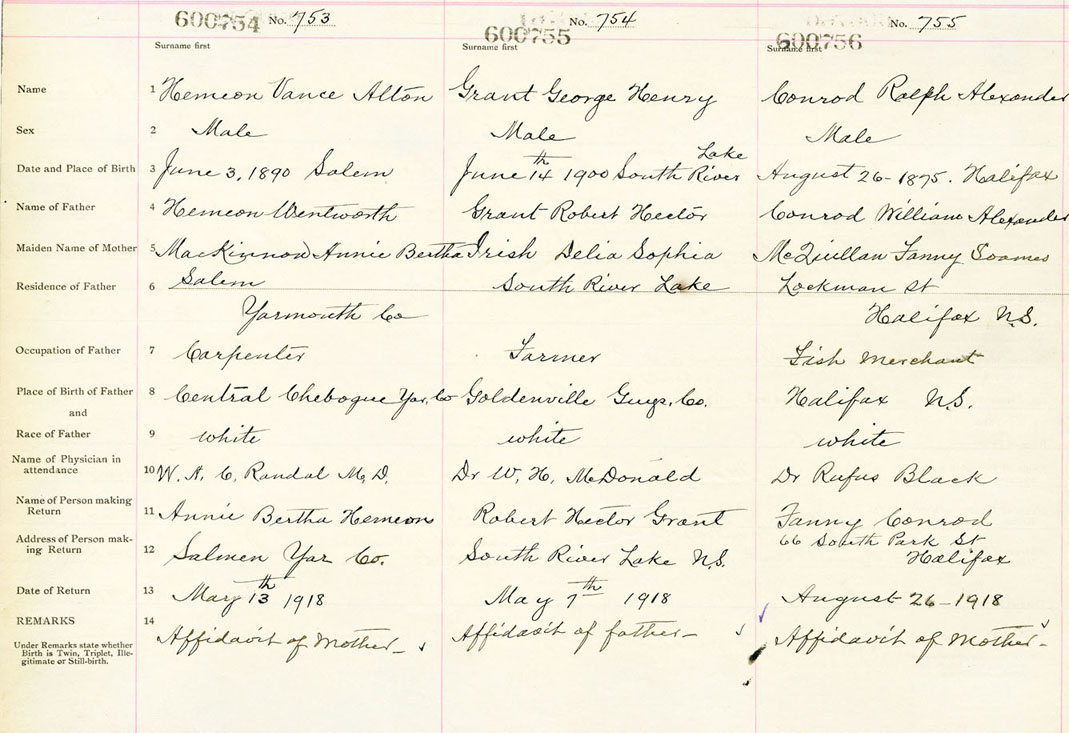 600754 No. 753 600755 No. 754 600756 No. 755
Surname first Surname first Surname first
Name 1 Hemeon Vance Alton Grant George Henry Conrod Ralph Alexander
Sex 2 Male Male Male
Lake
Date and Place of Birth 3 June 3, 1890 Salem June 14th 1900 South River August 26-1875. Halifax
Name of Father 4 Hemeon Wentworth Grant Robert Hector Conrod William Alexander
Maiden Name of Mother 5 MacKinnon Annie Bertha Irish Delia Sophia McQuillan Fanny Soames
Residence of Father 6 Salem South River Lake Lockman St
Yarmouth Co Halifax N.S.
Occupation of Father 7 Carpenter Farmer Fish Merchant
Place of Birth of Father 8 Central Chebogue Yar. Co Goldenville Guys. Co. Halifax N.S.
and
Race of Father 9 white white white
Name of Physician in
attendance 10 W. A. C. Randal M.D. Dr W. H. McDonald Dr Rufus Black
Name of Person making
Return 11 Annie Bertha Hemeon Robert Hector Grant Fanny Conrod
Address of Person mak- 66 South Park St
ing Return 12 Salmen Yar Co. South River Lake N.S. Halifax
Date of Return 13 May 13th 1918 May 7th 1918 August 26-1918
REMARKS 14 Affidavit of Mother- Affidavit of father- Affidavit of Mother-
Under Remarks state whether
Birth is Twin, Triplet, Ille-
gitimate or Still-birth.